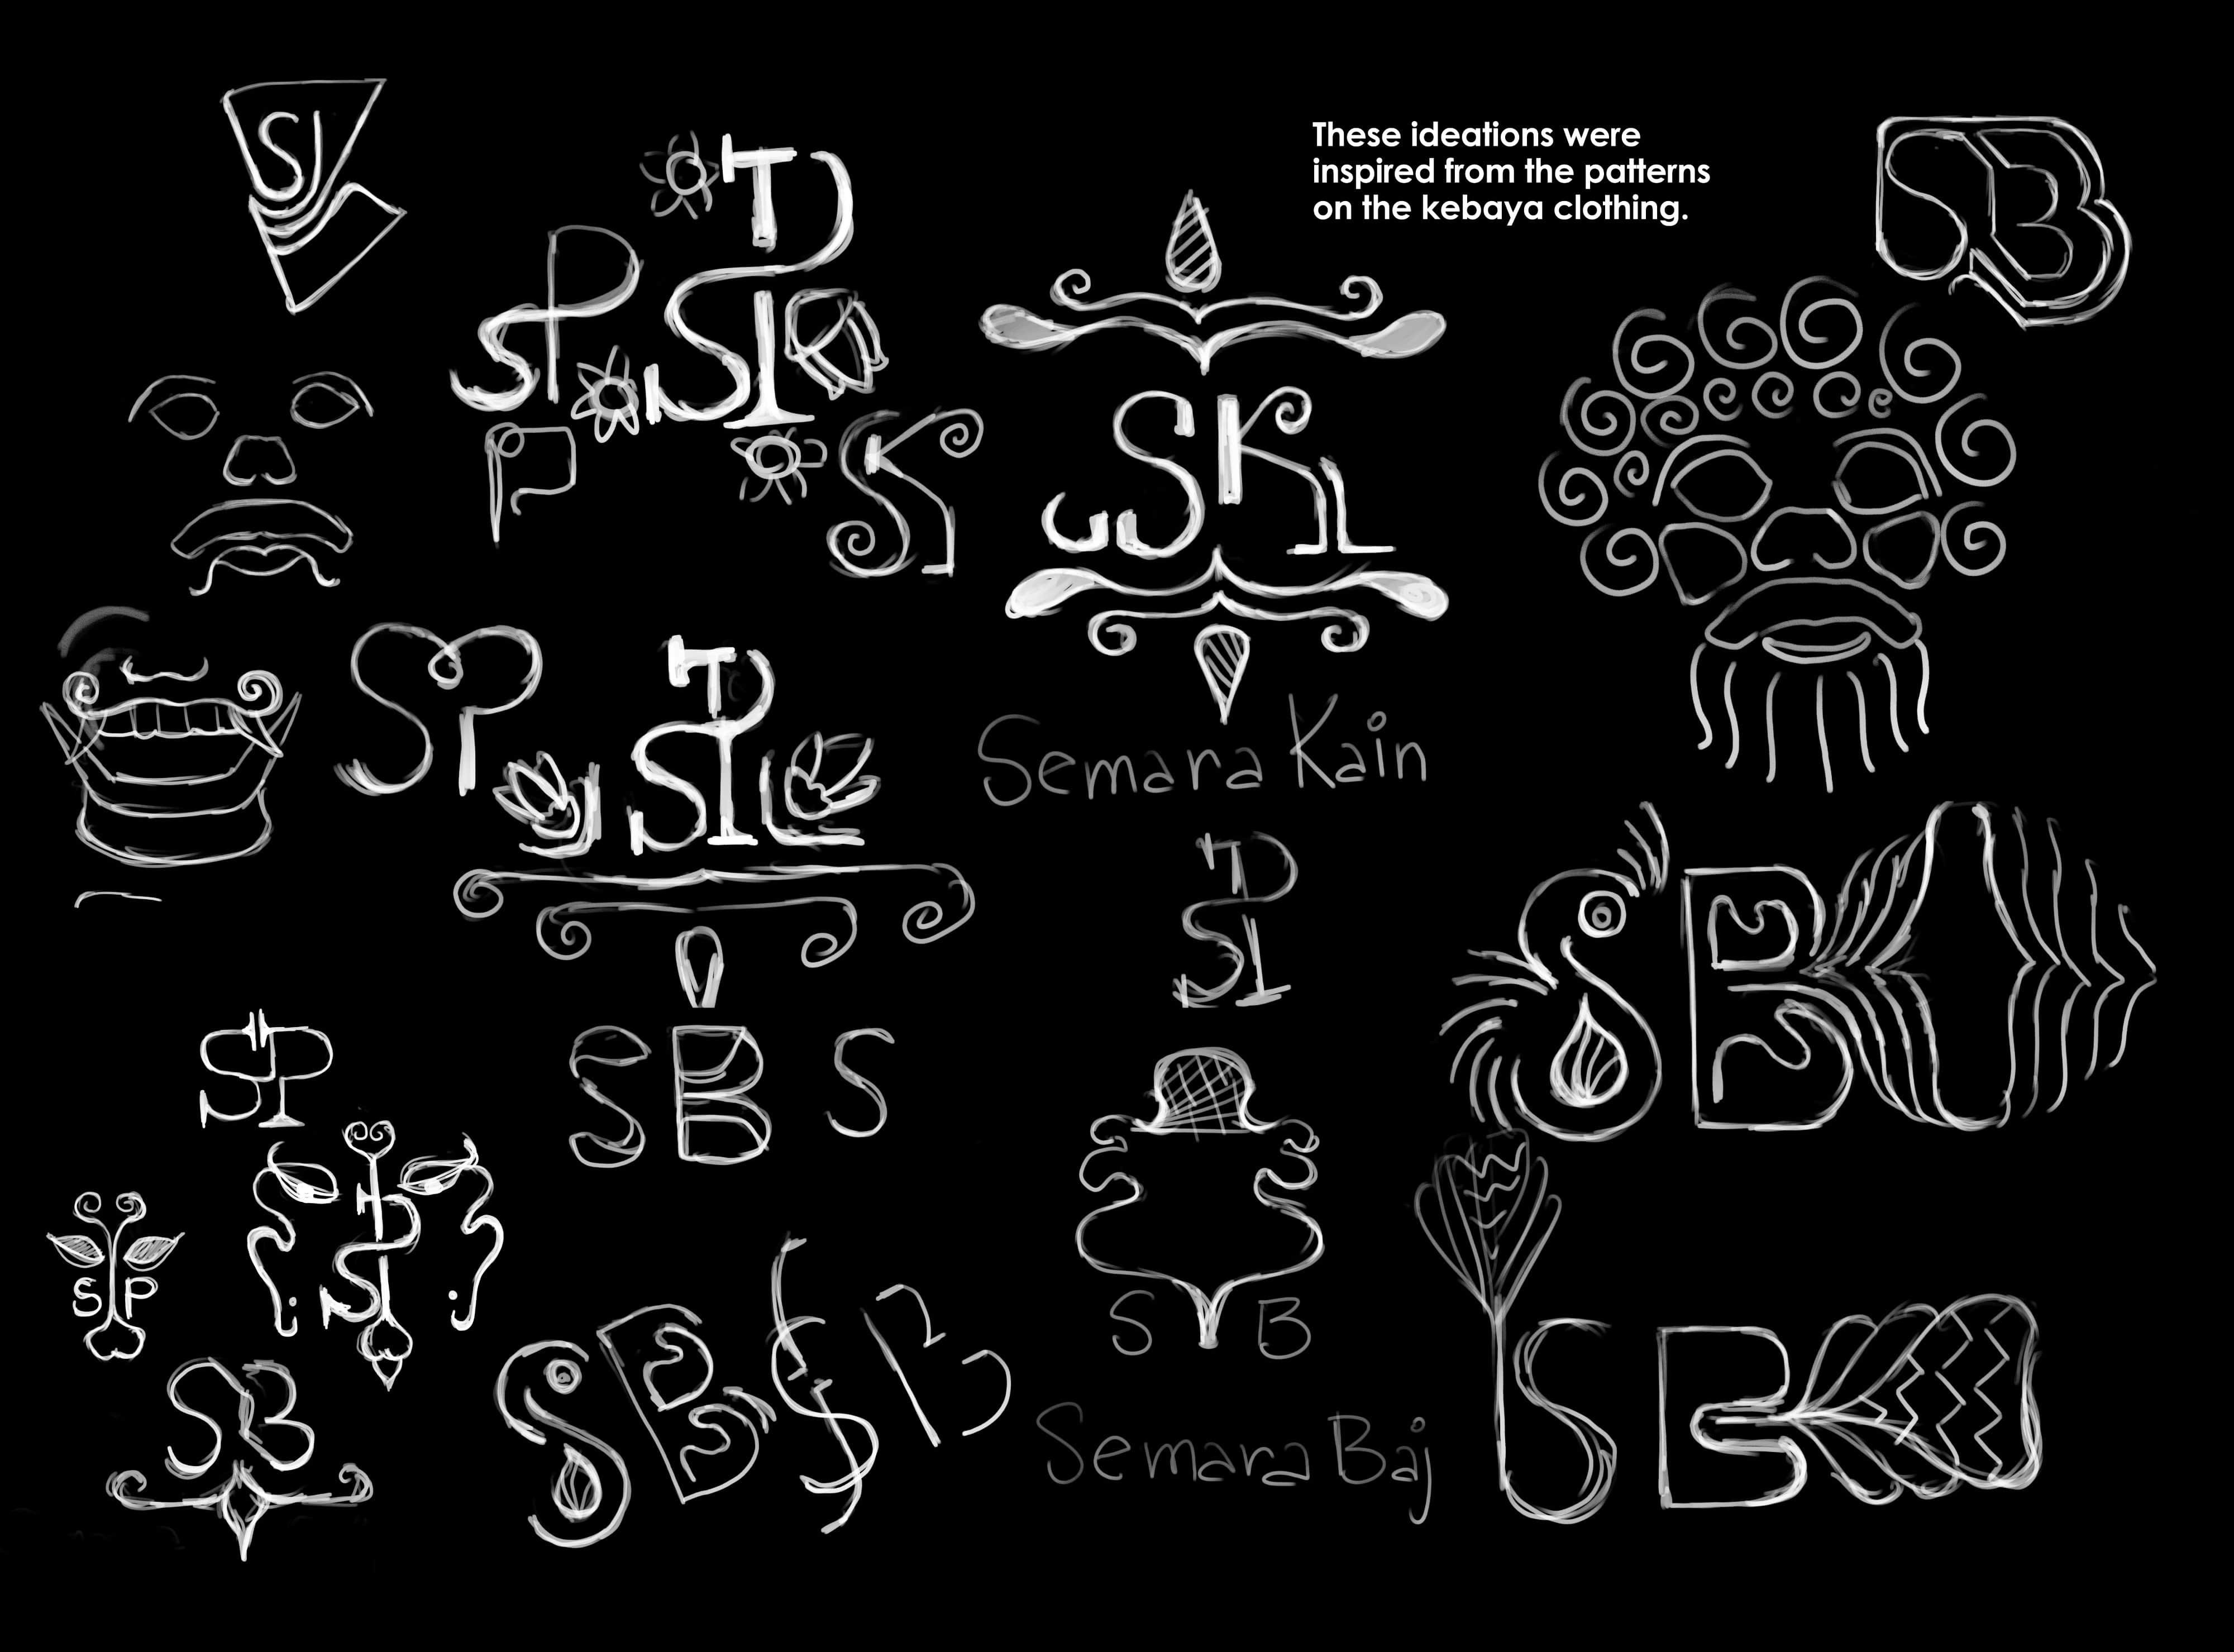 These ideations were
inspired from the patterns
on the kebaya clothing.
SB
SP
P
SK
SK
SP
Semara Kain
SP
SB S
SB
SP
S B
SB
SB
Semara Baj
SB